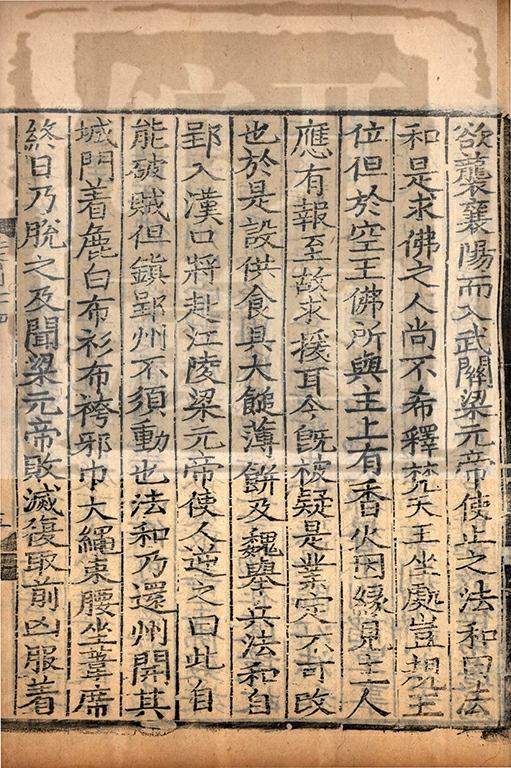 欲襲襄陽而入武關梁元帝使止之法和曰法
和是求佛之人尚不希釋梵天王坐處豈規主
位但於空王佛所與主上有香火因緣見主人
應有報至故求援耳今既被疑是業定不可改
也於是設供食具大䭔薄餅及魏舉兵法和自
郢入漢口將赴江陵梁元帝使人逆之曰此自
能破賊但鎮郢州不須動也法和乃還州開其
城門着麁白布衫布袴邪巾大繩束腰坐葦席
終日乃脫之及聞梁元帝敗滅復取前凶服着